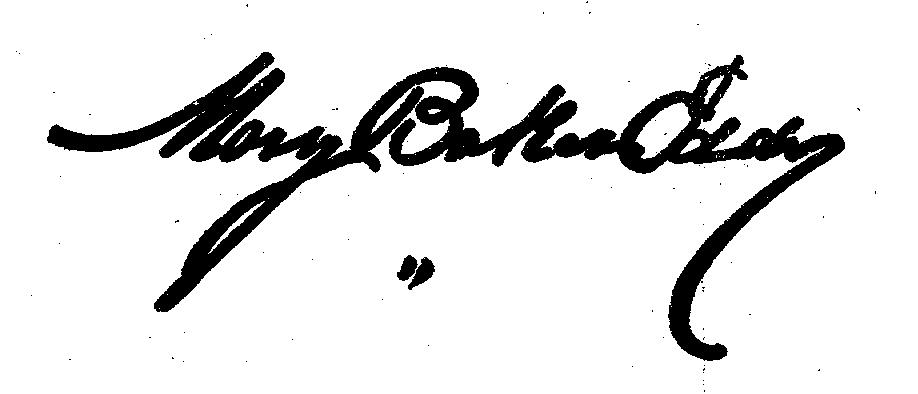 Mary Baker Eddy
"